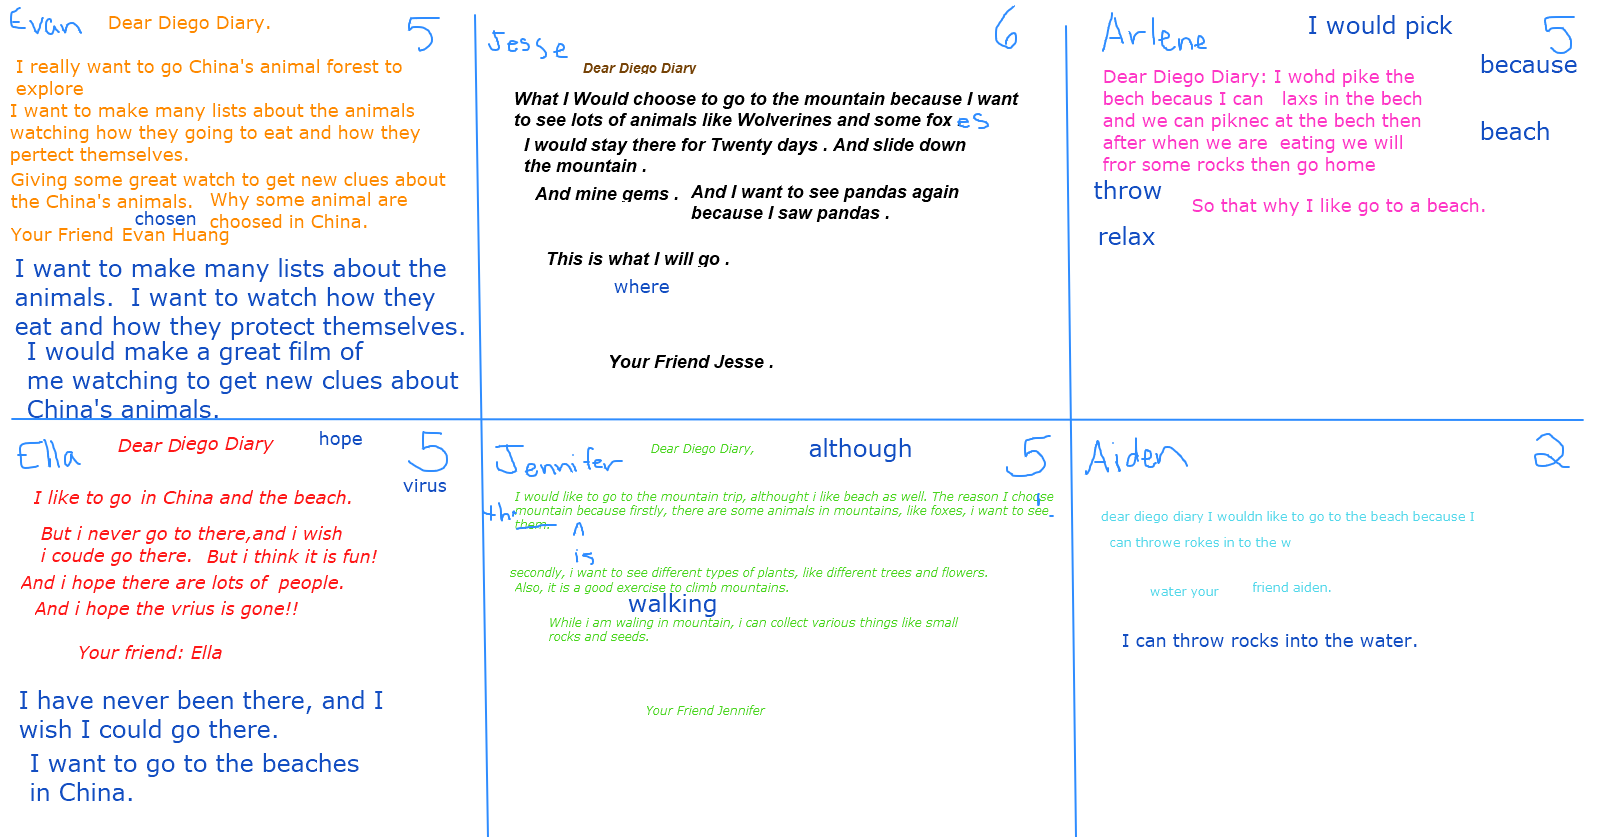 Evan
Dear Diego Diary.
5
I really want to go China's animal forest to
explore
I want to make many lists about the animals
watching how they going to eat and how they
pertect themselves.
Giving some great watch to get new clues about
the China's animals.
Why some animal are
choosed in China.
chosen
Your Friend Evan Huang
I want to make many lists about the
animals. I want to watch how they
eat and how they protect themselves.
I would make a great film of
me watching to get new clues about
China's animals.
Jesse
6
Dear Diego Diary
What I Would choose to go to the mountain because I want
to see lots of animals like Wolverines and some fox es
I would stay there for Twenty days . And slide down
the mountain .
And mine gems .
And I want to see pandas again
because I saw pandas .
This is what I will go .
where
Your Friend Jesse .
Arlene
I would pick
5
because
Dear Diego Diary: I wohd pike the
bech becaus I can laxs in the bech
and we can piknec at the bech then
after when we are eating we will
fror some rocks then go home
beach
throw
So that why I like go to a beach.
relax
Ella
Dear Diego Diary
hope
5
virus
I like to go in China and the beach.
But i never go to there,and i wish
i coude go there. But i think it is fun!
And i hope there are lots of people.
And i hope the vrius is gone!!
Your friend: Ella
I have never been there, and I
wish I could go there.
I want to go to the beaches
in China.
Jennifer
Dear Diego Diary,
although
5
I would like to go to the mountain trip, althought i like beach as well. The reason I choose
mountain because firstly, there are some animals in mountains, like foxes, i want to see
them.
is
secondly, i want to see different types of plants, like different trees and flowers.
Also, it is a good exercise to climb mountains.
walking
While i am waling in mountain, i can collect various things like small
rocks and seeds.
Your Friend Jennifer
Aiden
2
dear diego diary I wouldn like to go to the beach because I
can throwe rokes in to the w
water your
friend aiden.
I can throw rocks into the water.